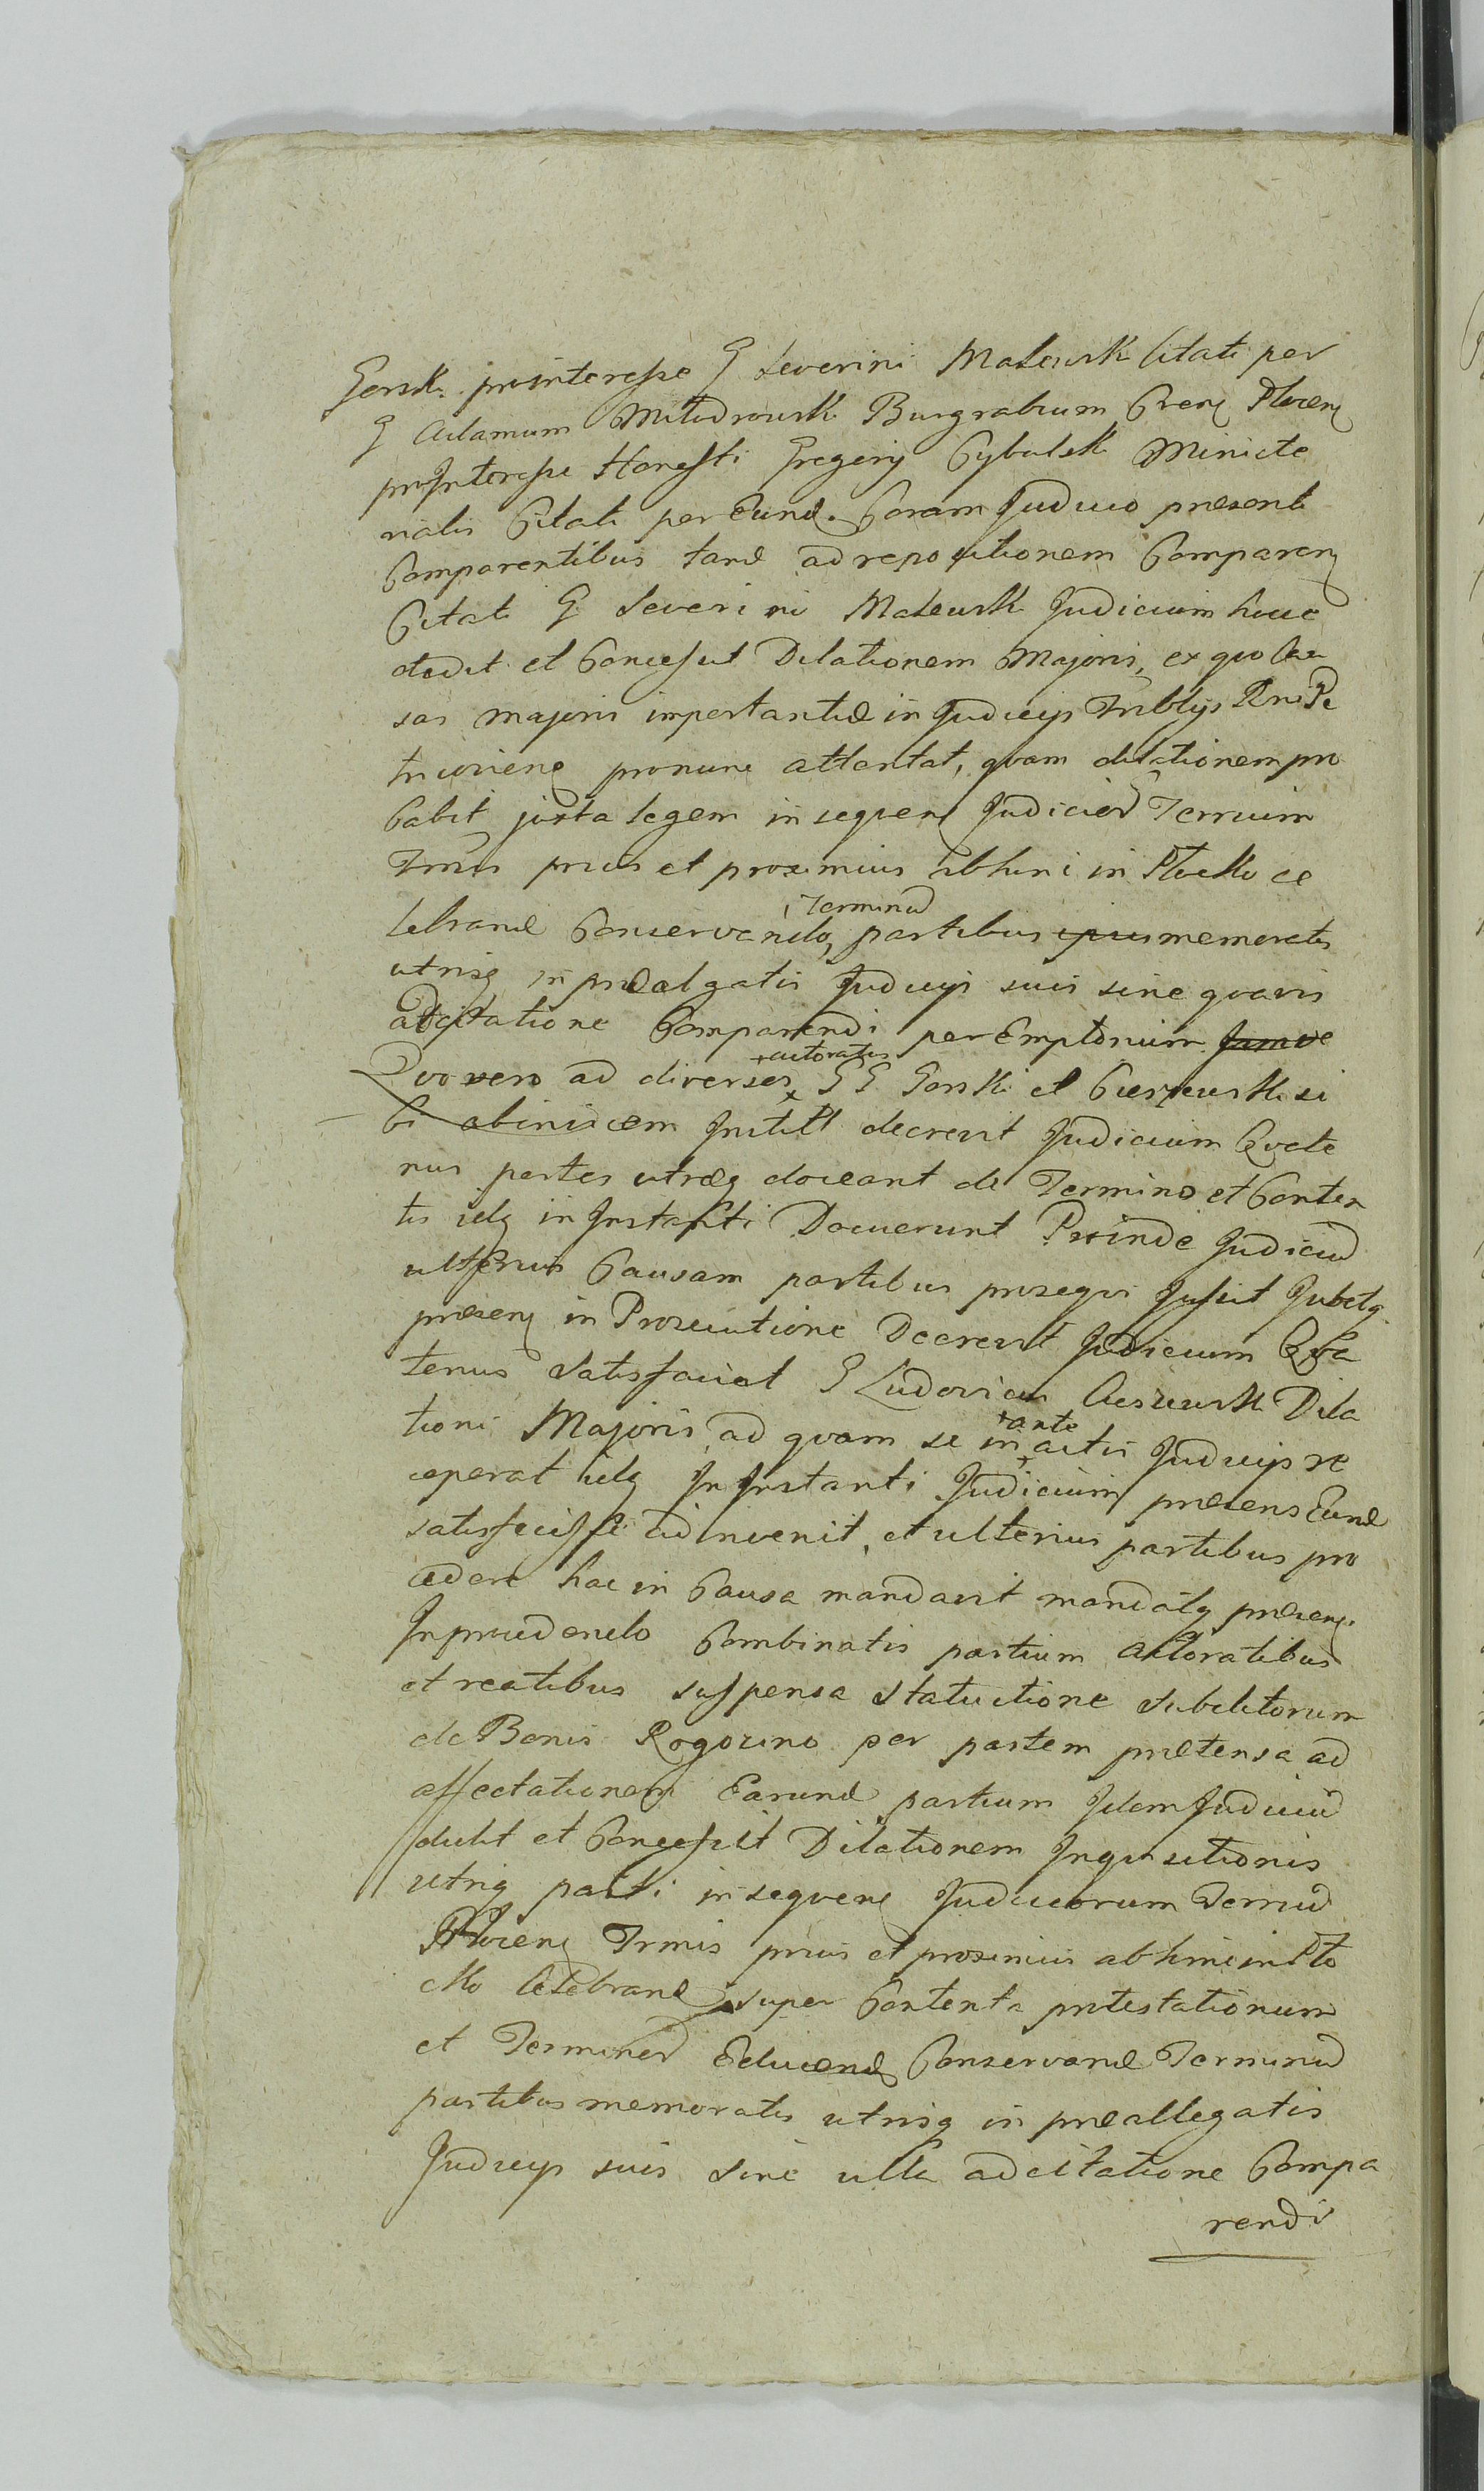 Gorsk. prointeresse G Severini Maleusk Citati per
G Adamum Milodrousk Burgrabium Crens Plocens
prointeresse Honesti Gregorij Cybulsk Ministe
rialis Citati per Eund. Coram Judicio presenti
Comparentibus tand ad repositionem Comparens
Citati G Severini Maleusk Judicium huic
dedit et Concessit Dilationem Majoris, ex quo Cau
sas majoris importantiæ in Judicijs Triblijs Rni Pe
tricoviens pronunc attentat, quam dilationem pro
babit juxta legem in sequens Judicior Terrum
Trmis prius et proximius abhinc in Plocko ce
lebrand Conservando, Terminũ partibus memoratis
utrisq in præalgatis Judicijs suis sine quavis
adcitatione Comparendi perEmptorium
Quo vero ad diverses actoratus GG Gorski et Cieszeusk si
bi abinvicem Instit decrevit Judicium Quate
nus partes utræq doceant de Termino et Conten
tis idq in Instanti Docuerunt Proinde Judiciũ
ulterius Causam partibus prosequi Jussit Jubetq
præsens in Prosecutione Decrevit Judicium Qua
tenus Satisfaciat G Ludovicus Cieszeusk Dila
tioni Majoris, ad quam se in ante actis Judicijs re
ceperat idq In Instanti Judicium præsens Eund
satisfecisse adinvenit, et ulterius partibus pro
cedere hac in Causa mandavit mandatq præsens.
In procedendo Combinatis partium actoratibus
et reatibus suspensa Statuitione Subditorum
de Bonis Rogozino per partem prætensa ad
affectationem Earund partium Idem Judiciũ
dedit et Concessit Dilationem Inquisitionis
utriq parti in sequens Judiciorum Terrũ
Plocens Trmis prius et proximius abhinc in Plo
cko Celebrand super Contenta protestationum
et Terminor Educend Conservand Terminũ
partibus memoratis utrisq in præallegatis
Judicijs suis Sine ulla adcitatione Compa
rendi